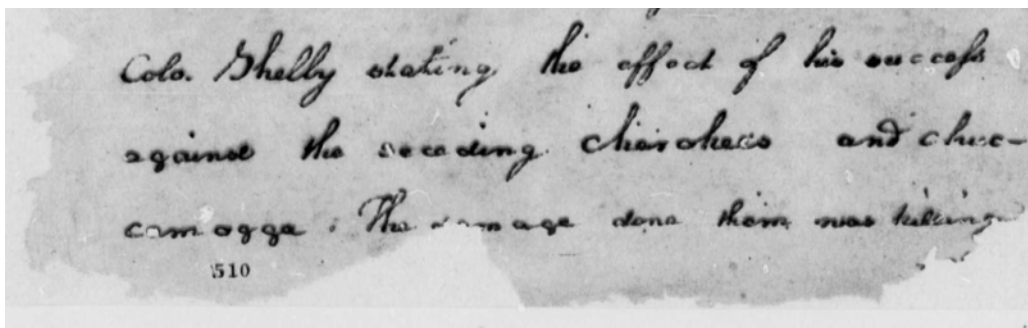 Colo. Shelby stating the effect of his success
against the seceding Cherokees and chuc-
camogga. The damage done them was killing
510